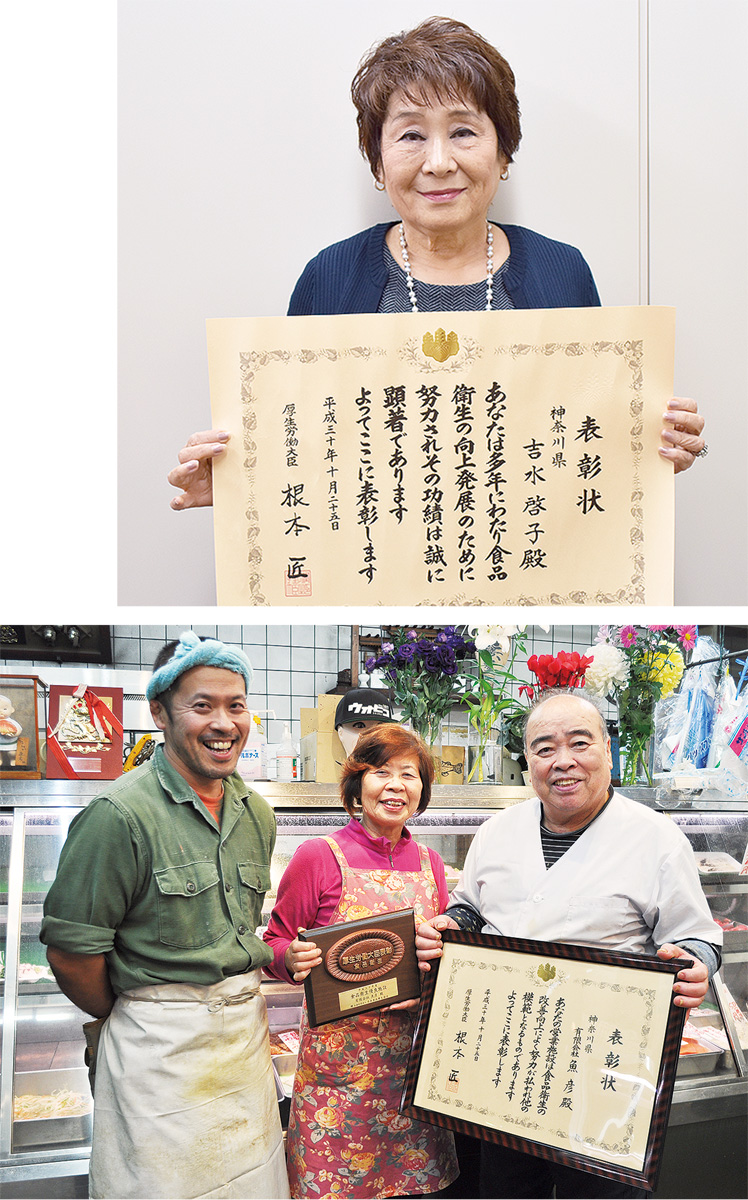 表彰状
神奈川県
吉水啓子殿
あなたは多年にわたり食品
衛生の向上発展のために
努力されその功績は誠に
顕著であります
よってここに表彰します
平成三十年十月二十五日
厚生労働大臣
根本匠
ウオヒコ
厚生労働大臣表彰
食品衛生
表彰状
神奈川県
有限会社魚彦殿
あなたの営業施設は食品衛生の
改善向上によく努力が払われ他の
模範となるものであります
よってここに表彰します
平成三十年十月二十五日
厚生労働大臣
根本匠